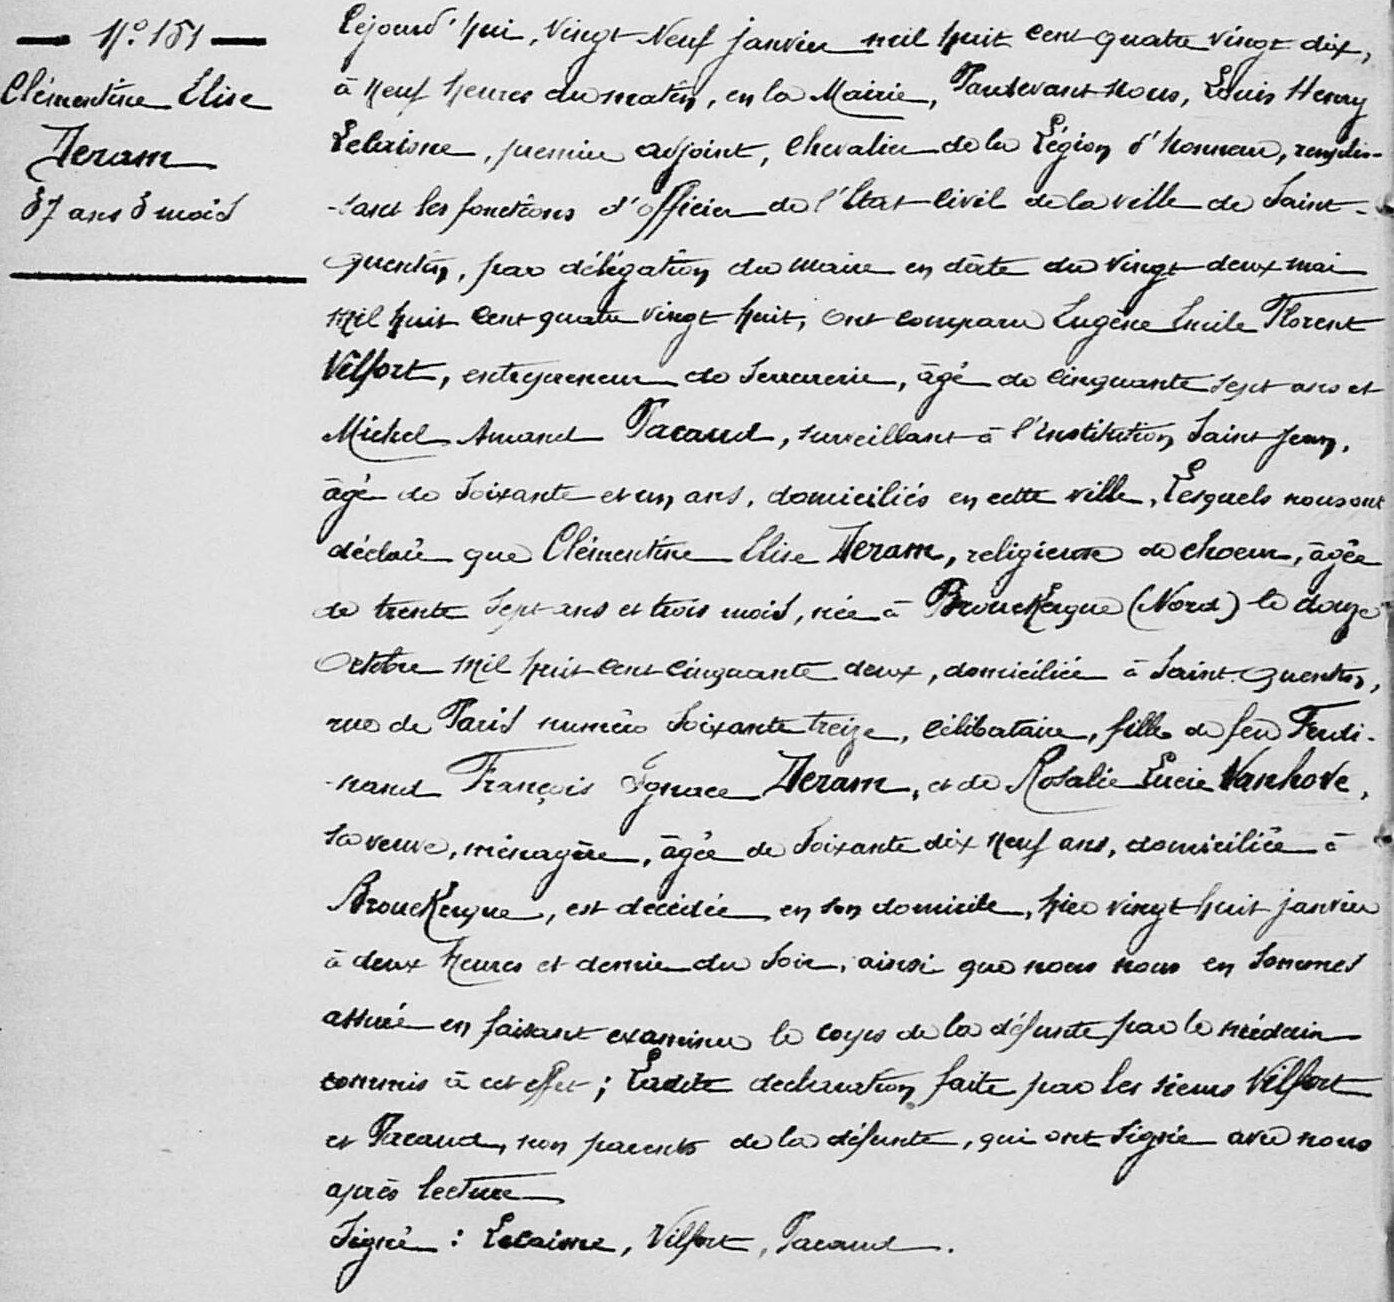 N° 151
Clémentine Elise
Deram
37 ans 3 mois
Cejourd'hui, vingt Neuf janvier mil huit cent quatre vingt dix,
à Neuf heures du matin, en la Mairie, Pardevant nous, Louis Henry
premier adjoint, Chevalier de la Légion d'honneur, remplis-
-sant les fonctions d'officier de l'Etat civil de la ville de Saint-
quentin, par délégation du maire en date du vingt deux mai
mil huit cent quatre vingt huit, ont comparu Eugène Emile Florent
Vilfort, entrepreneur de serrurerie, âgé de cinquante sept ans et
Michel Amand Pacaud, surveillant à l'institution Saint Jean,
âgé de soixante et un ans, domiciliés en cette ville, Lesquels nous ont
déclaré que Clémentine Elise Deram, religieuse de choeur, âgée
de trente sept ans et trois mois, née à Brouckerque (Nord) le douze
Octobre mil huit cent cinquante deux, domiciliée à Saint Quentin,
rue de Paris numéro soixante treize, célibataire, fille de feu Ferdi-
-nand François Ignace Deram, et de Rosalie Lucie Vanhove,
sa veuve, ménagère, âgée de soixante dix neuf ans, domiciliée à
Brouckerque, est décédée en son domicile, hier vingt huit janvier
à deux heures et demie du soir, ainsi que nous nous en sommes
assuré en faisant examiner le corps de la défunte par le médecin
commis à cet effet; Ladite déclaration faite par les sieurs Vilfort
et Pacaud, non parents de la défunte, qui ont signé avec nous
après lecture
Signé : Vilfort, Pacaud.